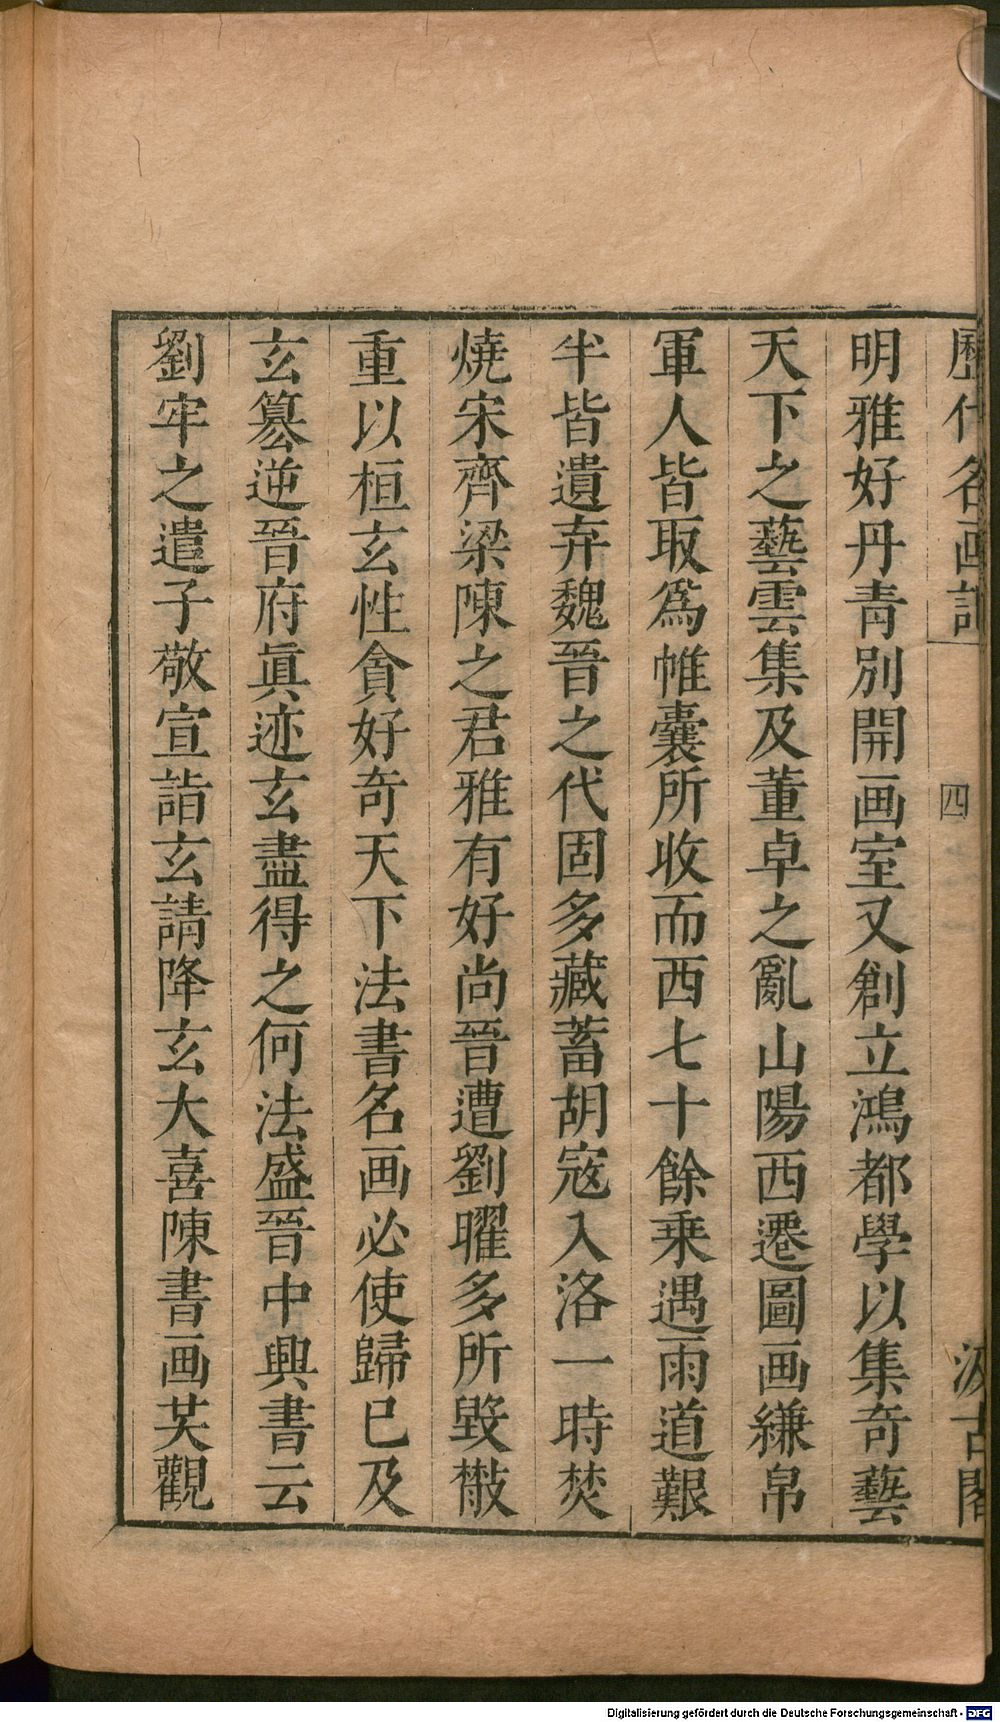 歷代名画記 四 汲古閣
明雅好丹青別開画室又創立鴻都學以集奇藝
天下之藝雲集及董卓之亂山陽西遷圖画縑帛
軍人皆取為帷囊所收而西七十餘乗遇雨道艱
半皆遺弃魏晉之代固多藏蓄胡寇入洛一時焚
燒宋齊梁陳之君雅有好尚晉遭劉曜多所毀㪚
重以桓玄性貪好奇天下法書名画必使歸已及
玄篡逆晉府眞迹玄盡得之何法盛晉中興書云
劉牢之遣子敬宣詣玄請降玄大喜陳書画共觀
Digitalisierung gefördert durch die Deutsche Forschungsgemeinschaft - DFG